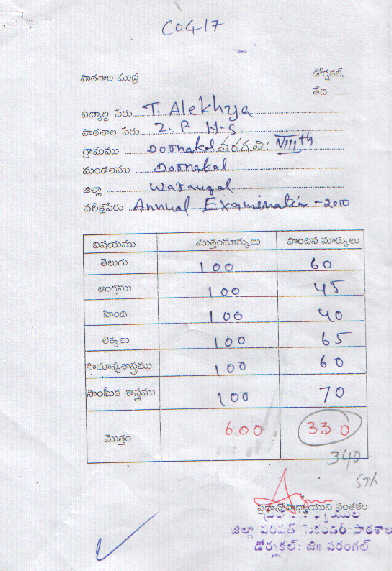 CC4-17
పాఠశాల ముద్ర
డోర్నకల్
తేది
విద్యార్థి పేరు T. Alekhya
పాఠశాల పేరు Z. P. H. S
గ్రామము Doonakal తరగతి: VIIIth
మండలము Doonakal
జిల్లా Warangal
పరీక్షపేరు Annual Examination - 2010
విషయము మొత్తంమార్కులు పొందిన మార్కులు
తెలుగు 100 60
ఆంగ్లము 100 45
హింది 100 40
లెక్కలు 100 65
సామాన్యశాస్త్రము 100 60
సాంఘీక శాస్త్రము 100 70
మొత్తం 600 330
340
57%
ప్రధానోపాధ్యాయుని సంతకం
జిల్లా పరిషత్ సెకండరీ పాఠశాల
డోర్నకల్: జిః వరంగల్